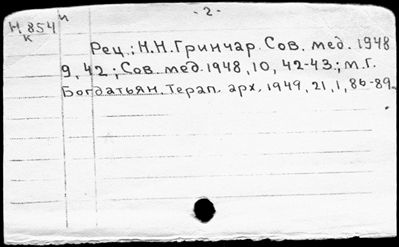 - 2 -
Н.854 и
к
Рец.: Н.Н.Гринчар. Сов. мед. 1948
9, 42.; Сов. мед. 1948, 10, 42-43.; М.Г.
Богдатьян. Терап. арх. 1949, 21, 1, 86-89.